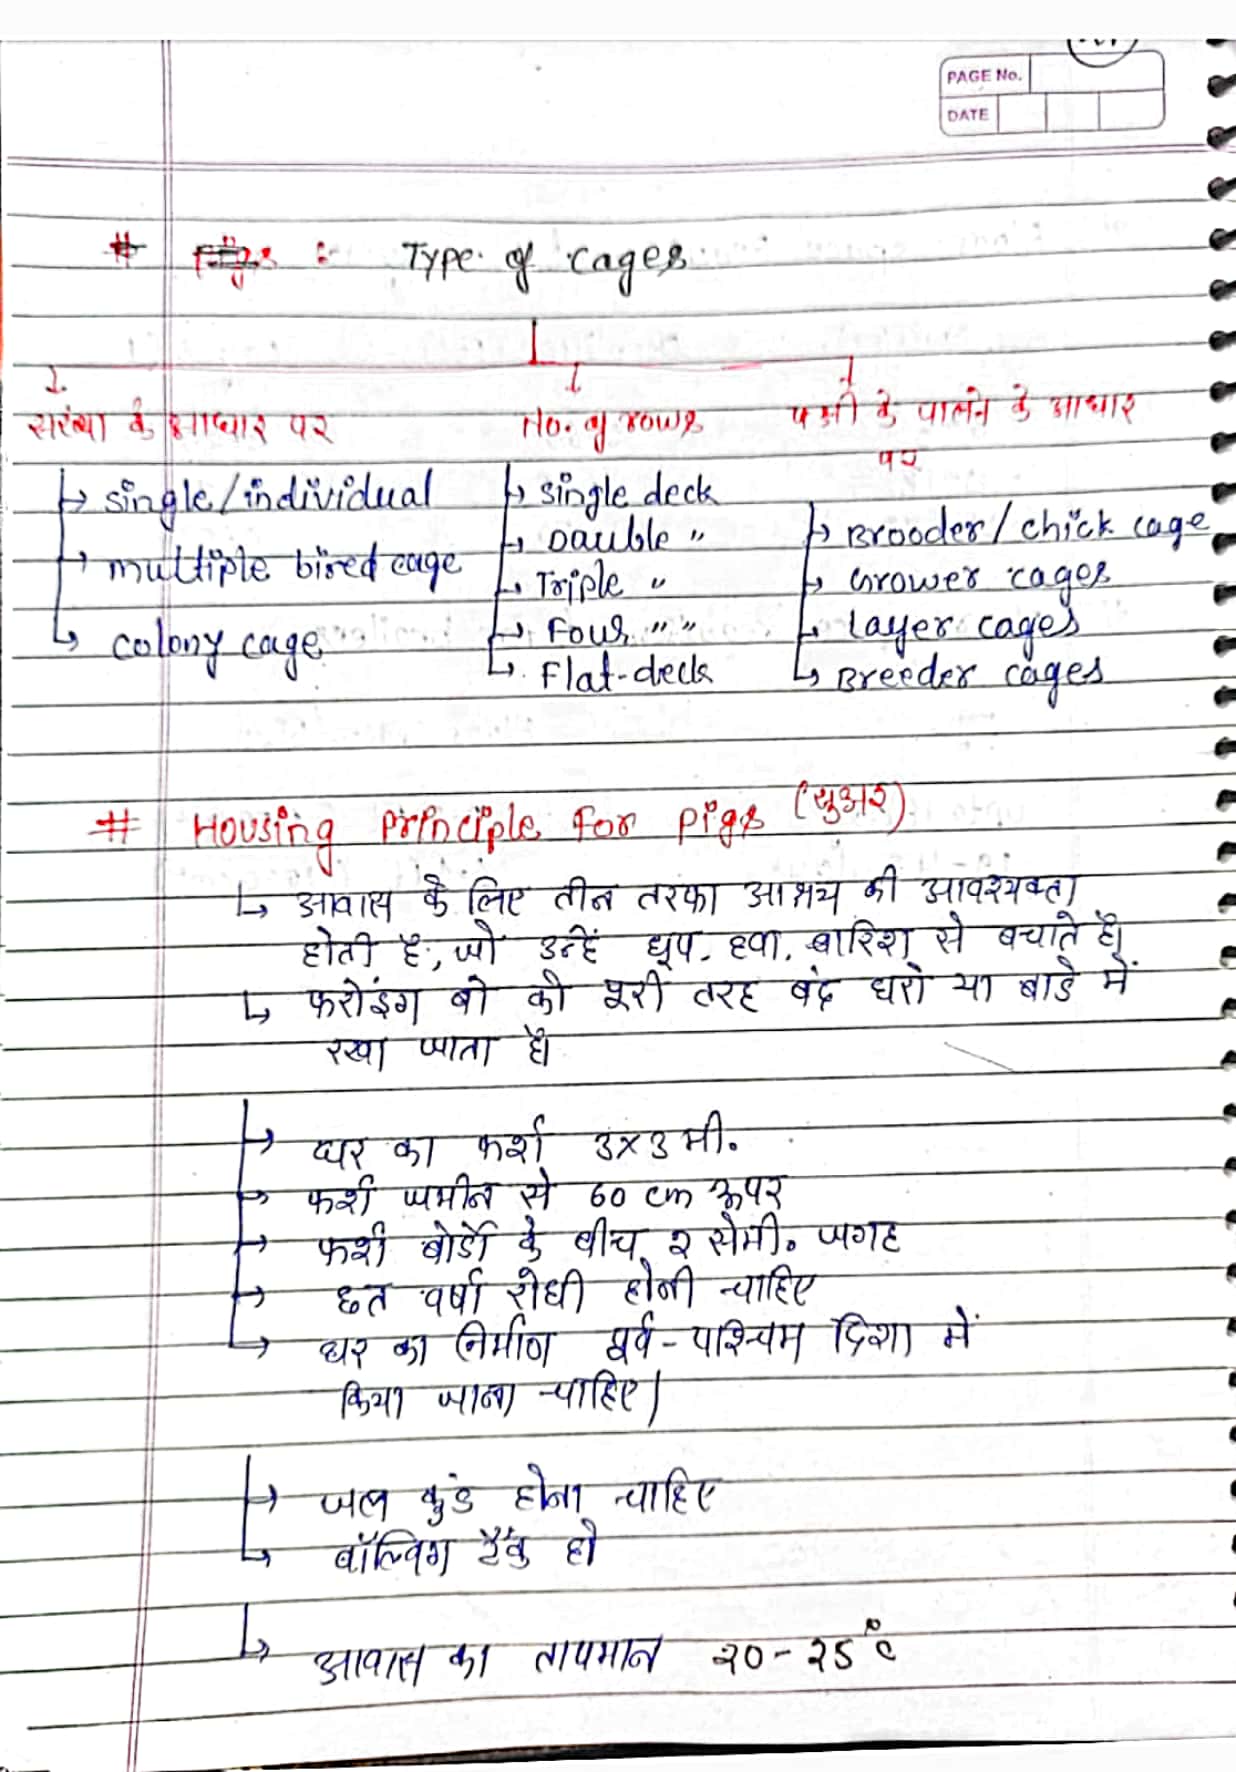 PAGE No.
DATE
# : Type of cages
संख्या के आधार पर
No. of rows
पक्षी के पालने के आधार
पर
single/individual
multiple bired cage
colony cage
single deck
Dauble "
Triple "
Four " "
Flat-deck
Brooder/chick cage
Grower cages
Layer cages
Breeder cages
# Housing principle for pigs (सुअर)
आवास के लिए तीन तरफा आश्रय की आवश्यक्ता
होती है, जो उन्हें धूप, हवा, बारिश से बचाते है।
फरोइंग बो को पूरी तरह बंद घरो या बाडे में
रखा जाता है।
घर का फर्श 3x3 मी.
फर्श जमीन से 60 cm ऊपर
फर्श बोर्डो के बीच २ सेमी. जगह
छत वर्षा रोधी होनी चाहिए
घर का निर्माण पूर्व-पश्चिम दिशा में
किया जाना चाहिए।
जल कुंड होना चाहिए
वॉल्विंग टैंक हो
आवास का तापमान २०-२5°c